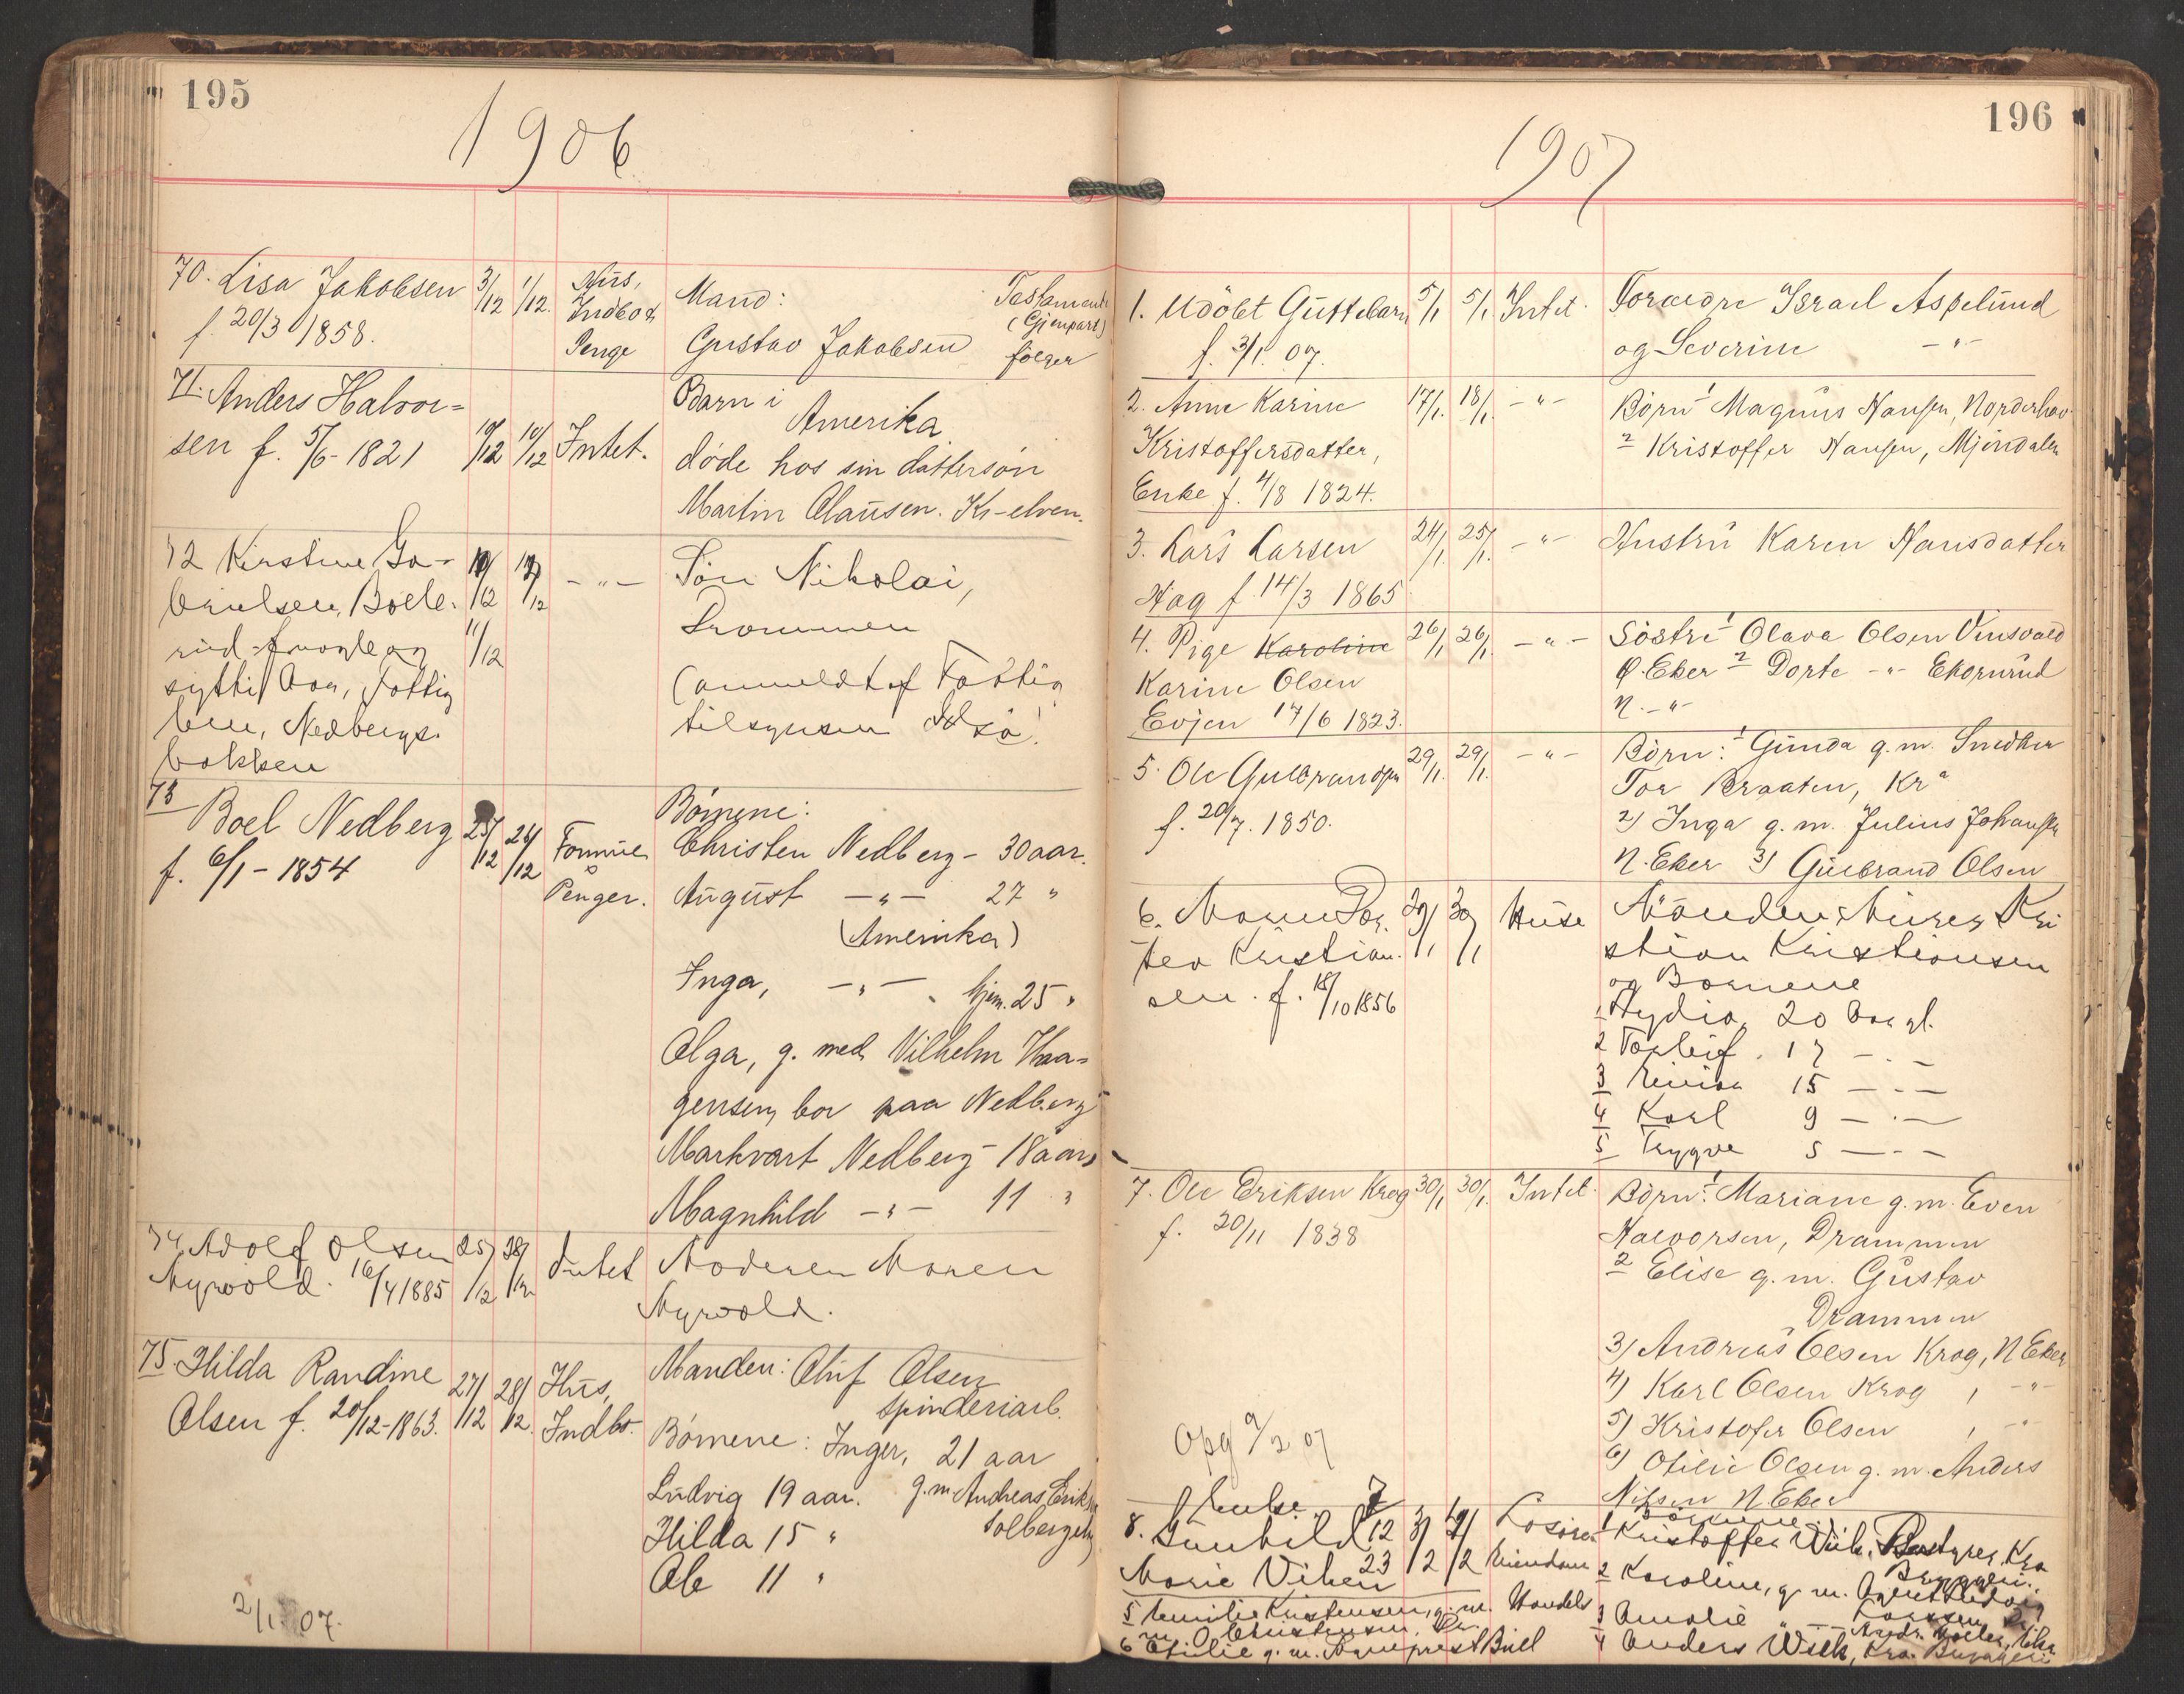 195
1906
70. Lisa Jakobsen 3/12 1/12. Hus, Mand: Testament
f. 20/3 1858. Indbo & (Gjenpart)
Penge Gustav Jakobsen følger
71. Anders Halvor= Barn i
Amerika
sen f. 5/6-1821 10/12 10/12 Intet. døde hos sin dattersøn
Martin Clausen. Kr-elven.
72 Kirstine Ga- 10/12 12/12 -"- Søn Nikolai,
11/12 Drammen
sytti Aar, Fattig (anmeldt af Fattig
lem, Nedbergs- tilsynsm
bakken
73
Boel Nedberg 25/12 26/12 Formue Børnene:
f. 6/1-1854 Penger. Christen Nedberg - 30 aar.
August -"- 27 "
(Amerika)
Inga, -"- hjem. 25 "
Olga, g. med Vilhelm Haa=
gensen, bor paa Nedberg
Markvart Nedberg - 18 aar
Magnhild -"- 11 "
74 Adolf Olsen 25/12 28/12 Intet Moderen Maren
Myrvold. 16/4 1885 Myrvold.
75. Hilda Randine 27/12 28/12 Hus, Manden: Oluf Olsen
Olsen f. 20/12-1863. Indbo. Spinderiarb.
Børnene: Inger, 21 aar
Ludvig 19 aar. g.m. Andreas Eriksen
Hilda 15 " Solbergelv
Ole 11 "
2/1. 07.
196
1907
1. Udöbt Guttebarn 5/1 5/1 Intet. Forældre Israel Aspelund
f. 3/1. 07. og Severine -"-
2. Anne Karine 17/1. 18/1. -"- Börn 1 Magnus Hansen, Norderhov
Kristoffersdatter, 2 Kristoffer Hansen, Mjöndalen
Enke f. 4/8 1824.
3. Lars Larsen 24/1. 25/1. -"- Hustru Karen Hansdatter
Hag f. 14/3 1865
4. Pige Karoline 26/1 26/1. -"- Söstre 1 Olava Olsen Vinsvold
Karine Olsen Ø. Eker 2 Dorte -"- Ekornrud
Evjen 17/6 1823. N. -"-
5. Ole Gulbrandsen 29/1. 29/1. -"- Börn: 1 Gunda g.m. Snedker
f. 20/7. 1850. Tor Braaten, Kra
2) Inga g.m. Julius Johansen
N. Eker 3) Gulbrand Olsen
6. Maren Dor. 29/1 30/1 Huse Manden Murer Kri
tea Kristian. stian Kristiansen
sen. f. 18/10 1856 og Børnene
1 Lydia 20 Aar gl.
2 Torleif. 17 -"-
3 15 -"-
4 Karl 9 -"-
5 Trygve 5 -"-
7. Ole Eriksen Krog 30/1 30/1. Intet. Börn: 1 Mariane g.m. Even
f. 20/11 1838 Halvorsen, Drammen
2 Elise g.m. Gustav
Drammen
3) Andreas Olsen Krog, N Eker
4) Karl Olsen Krog , -"-
5) Kristofer Olsen , -"-
6) Otilie Olsen g.m. Anders
Nilsen N. Eker
Opg 9/2 07
f Enke. 7 Børnene:
8. Gunhild 12 3/2 Løsøre 1 Kristoffer Wiik, Bestyrer, Kra
Marie Viken 23 Eiendom Bryggeri.
2 Karoline, g.m.
Larsen
5 Emilie Kristensen, g.m. Handels 3 Amalie " -
m. O. Christensen, Dr.
6 Otilie g.m. Sogneprest Bull 4 Anders Wiik, Kra. Bryggeri